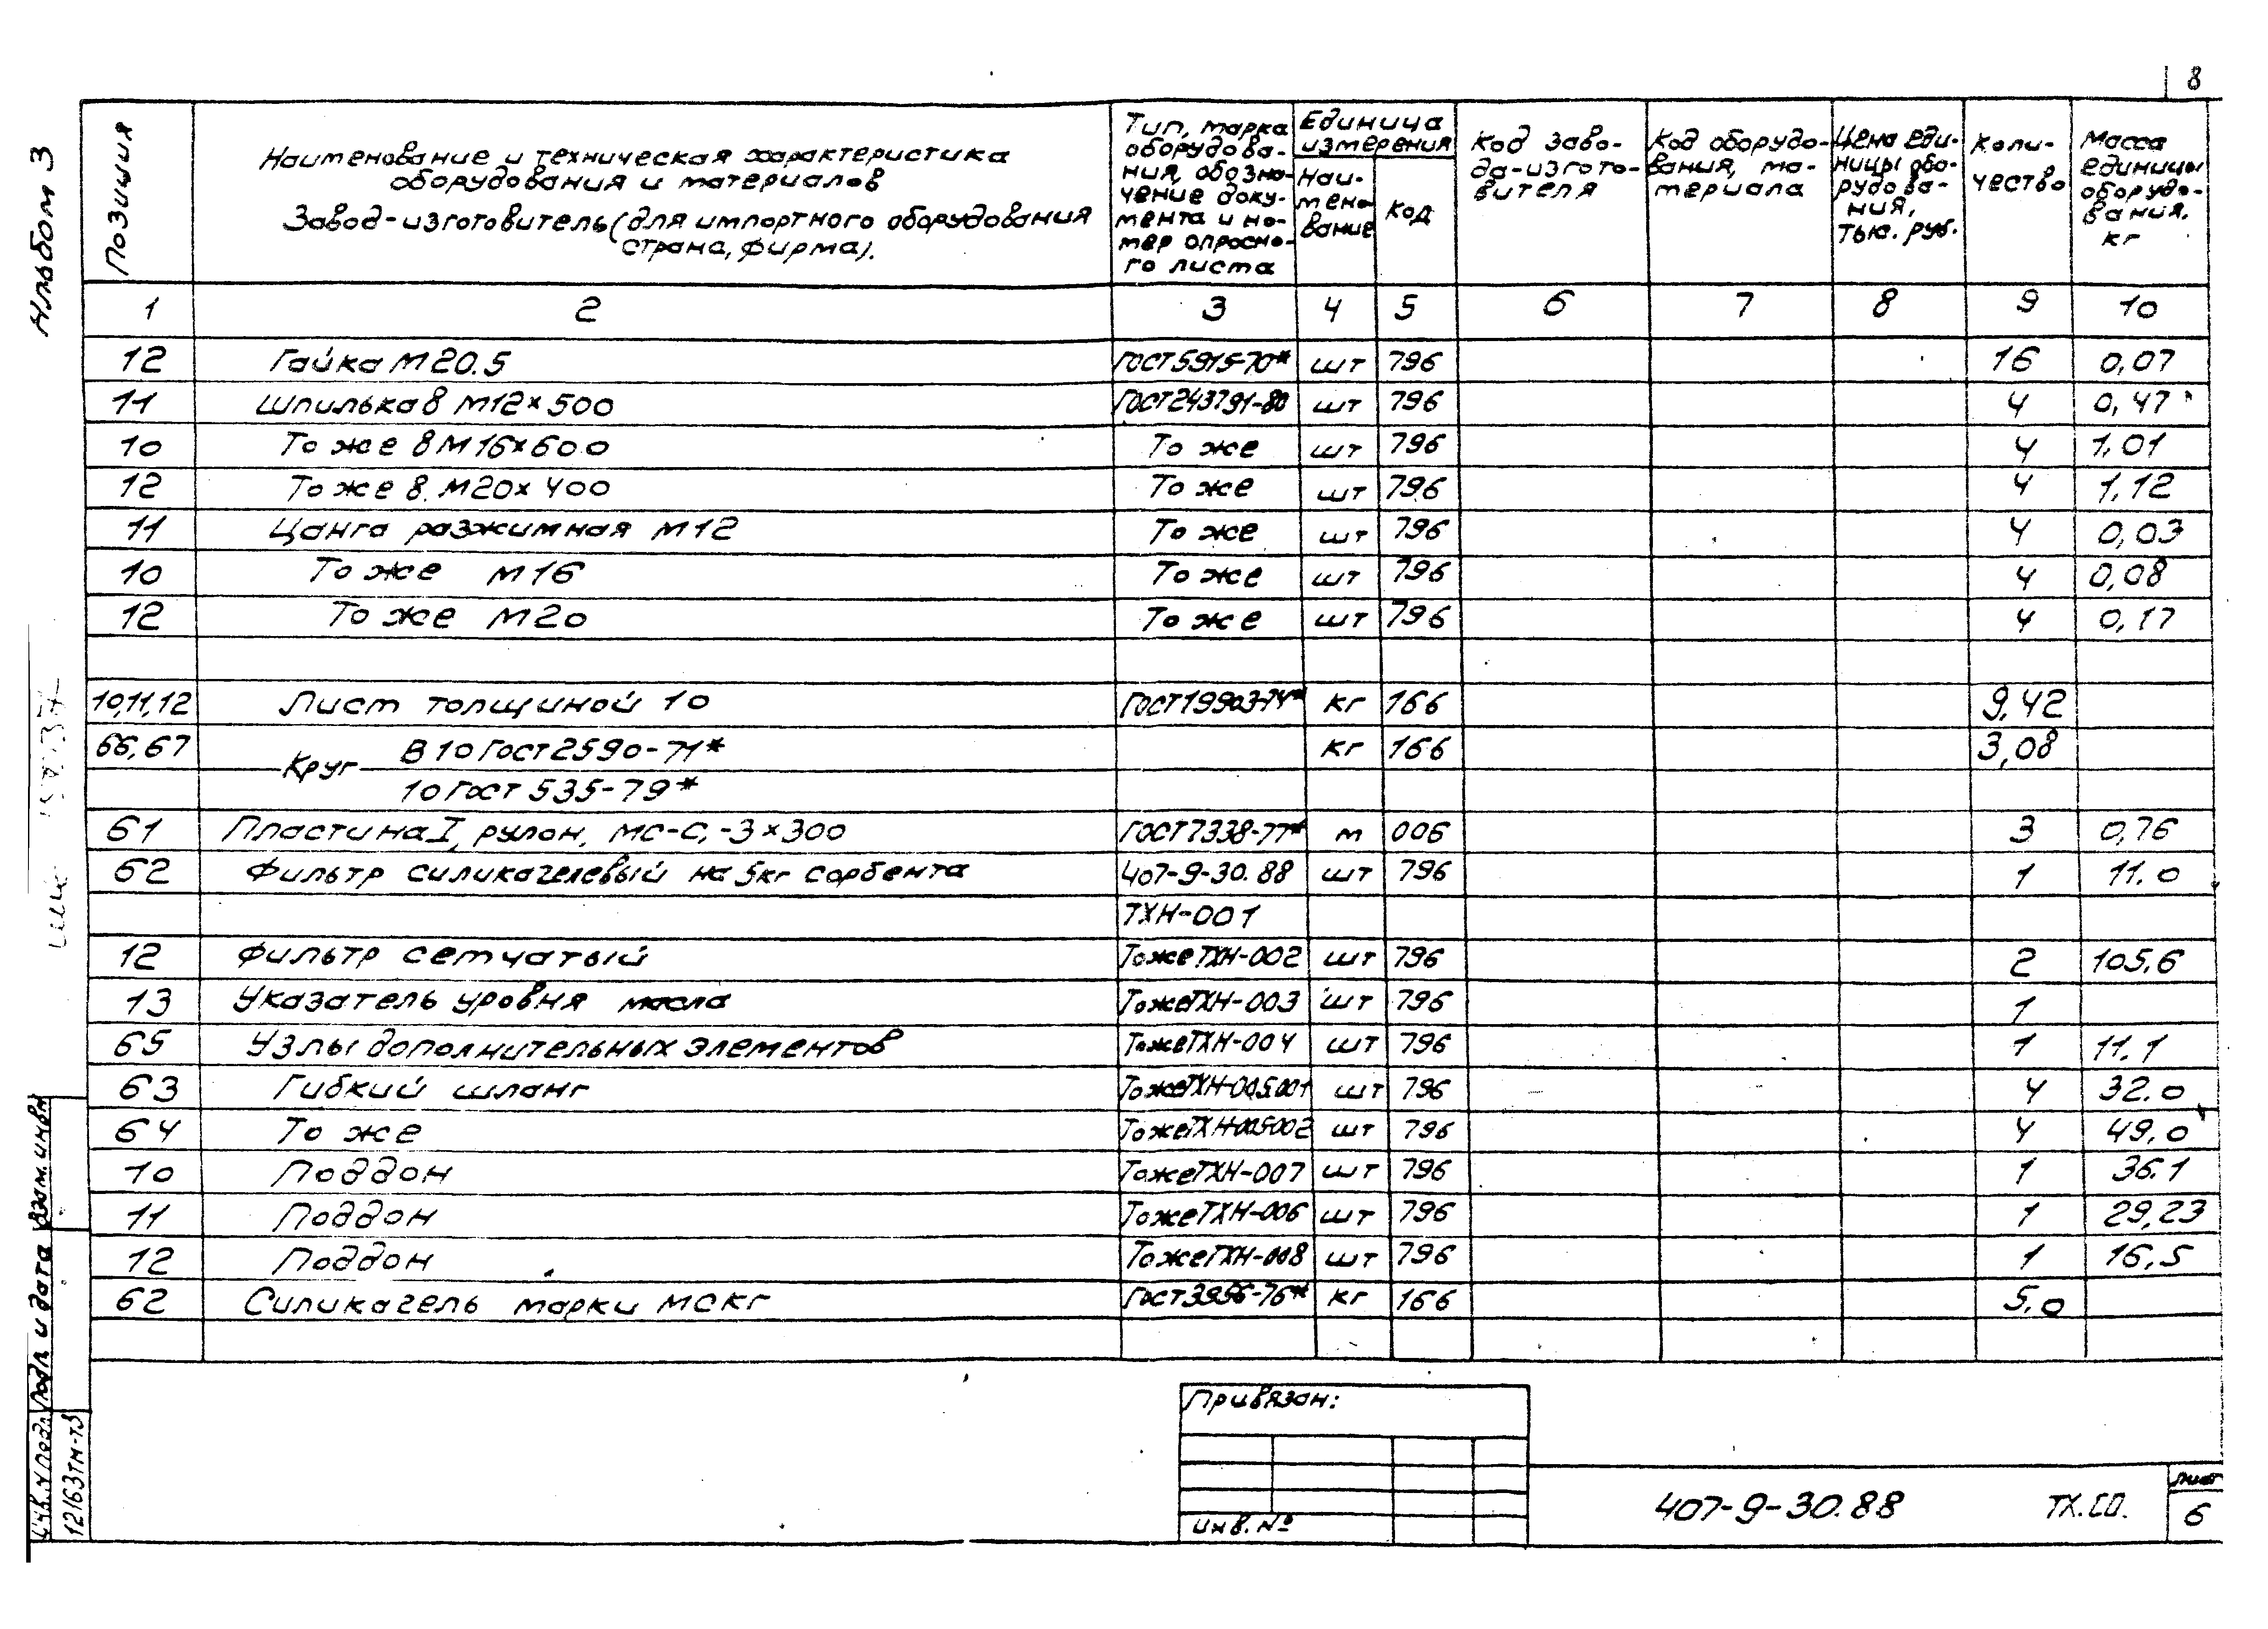 8
Альбом 3
Позиция
Наименование и техническая характеристика
оборудования и материалов
Завод-изготовитель (для импортного оборудования
страна, фирма).
Тип, марка
оборудова-
ния, обозна-
чение доку-
мента и но-
мер опросно-
го листа
Единица
измерения
Наи-
мено
вание
Код
Код заво-
да-изгото-
вителя
Код оборудо-
вания, ма-
териала
Цена еди-
ницы обо-
рудова-
ния,
тыс. руб.
Коли-
чество
Масса
единицы
оборудо-
вания,
кг
1 2 3 4 5 6 7 8 9 10
12 Гайка М20.5 ГОСТ5915-70* шт 796 16 0,07
11 Шпилька 8 М12×500 ГОСТ24379.1-80 шт 796 4 0,47
10 То же 8 М16×600 То же шт 796 4 1,01
12 То же 8. М20×400 То же шт 796 4 1,12
11 Цанга разжимная М12 То же шт 796 4 0,03
10 То же М16 То же шт 796 4 0,08
12 То же М20 То же шт 796 4 0,17
10,11,12 Лист толщиной 10 ГОСТ19903-74* кг 166 9,42
66,67 Круг В 10 Гост 2590-71* кг 166 3,08
10 Гост 535-79*
61 Пластина I, рулон, МС-С,-3×300 ГОСТ7338-77* м 006 3 0,76
62 Фильтр силикагелевый на 5кг сорбента 407-9-30.88 шт 796 1 11.0
ТХН-001
12 Фильтр сетчатый То же ТХН-002 шт 796 2 105,6
13 Указатель уровня масла То же ТХН-003 шт 796 1
65 Узлы дополнительных элементов То же ТХН-004 шт 796 1 11.1
63 Гибкий шланг То же ТХН-005.001 шт 796 4 32.0
64 То же То же ТХН-005002 шт 796 4 49,0
10 Поддон То же ТХН-007 шт 796 1 36.1
11 Поддон То же ТХН-006 шт 796 1 29,23
12 Поддон То же ТХН-008 шт 796 1 16,5
62 Силикагель марки МСКГ Гост 3956-76* кг 166 5,0
Взам. инв№
Подп. и дата
Инв. № подл
12163тм-т3
Привязан:
Инв. №
407-9-30.88 ТХ.СО.
Лист
6